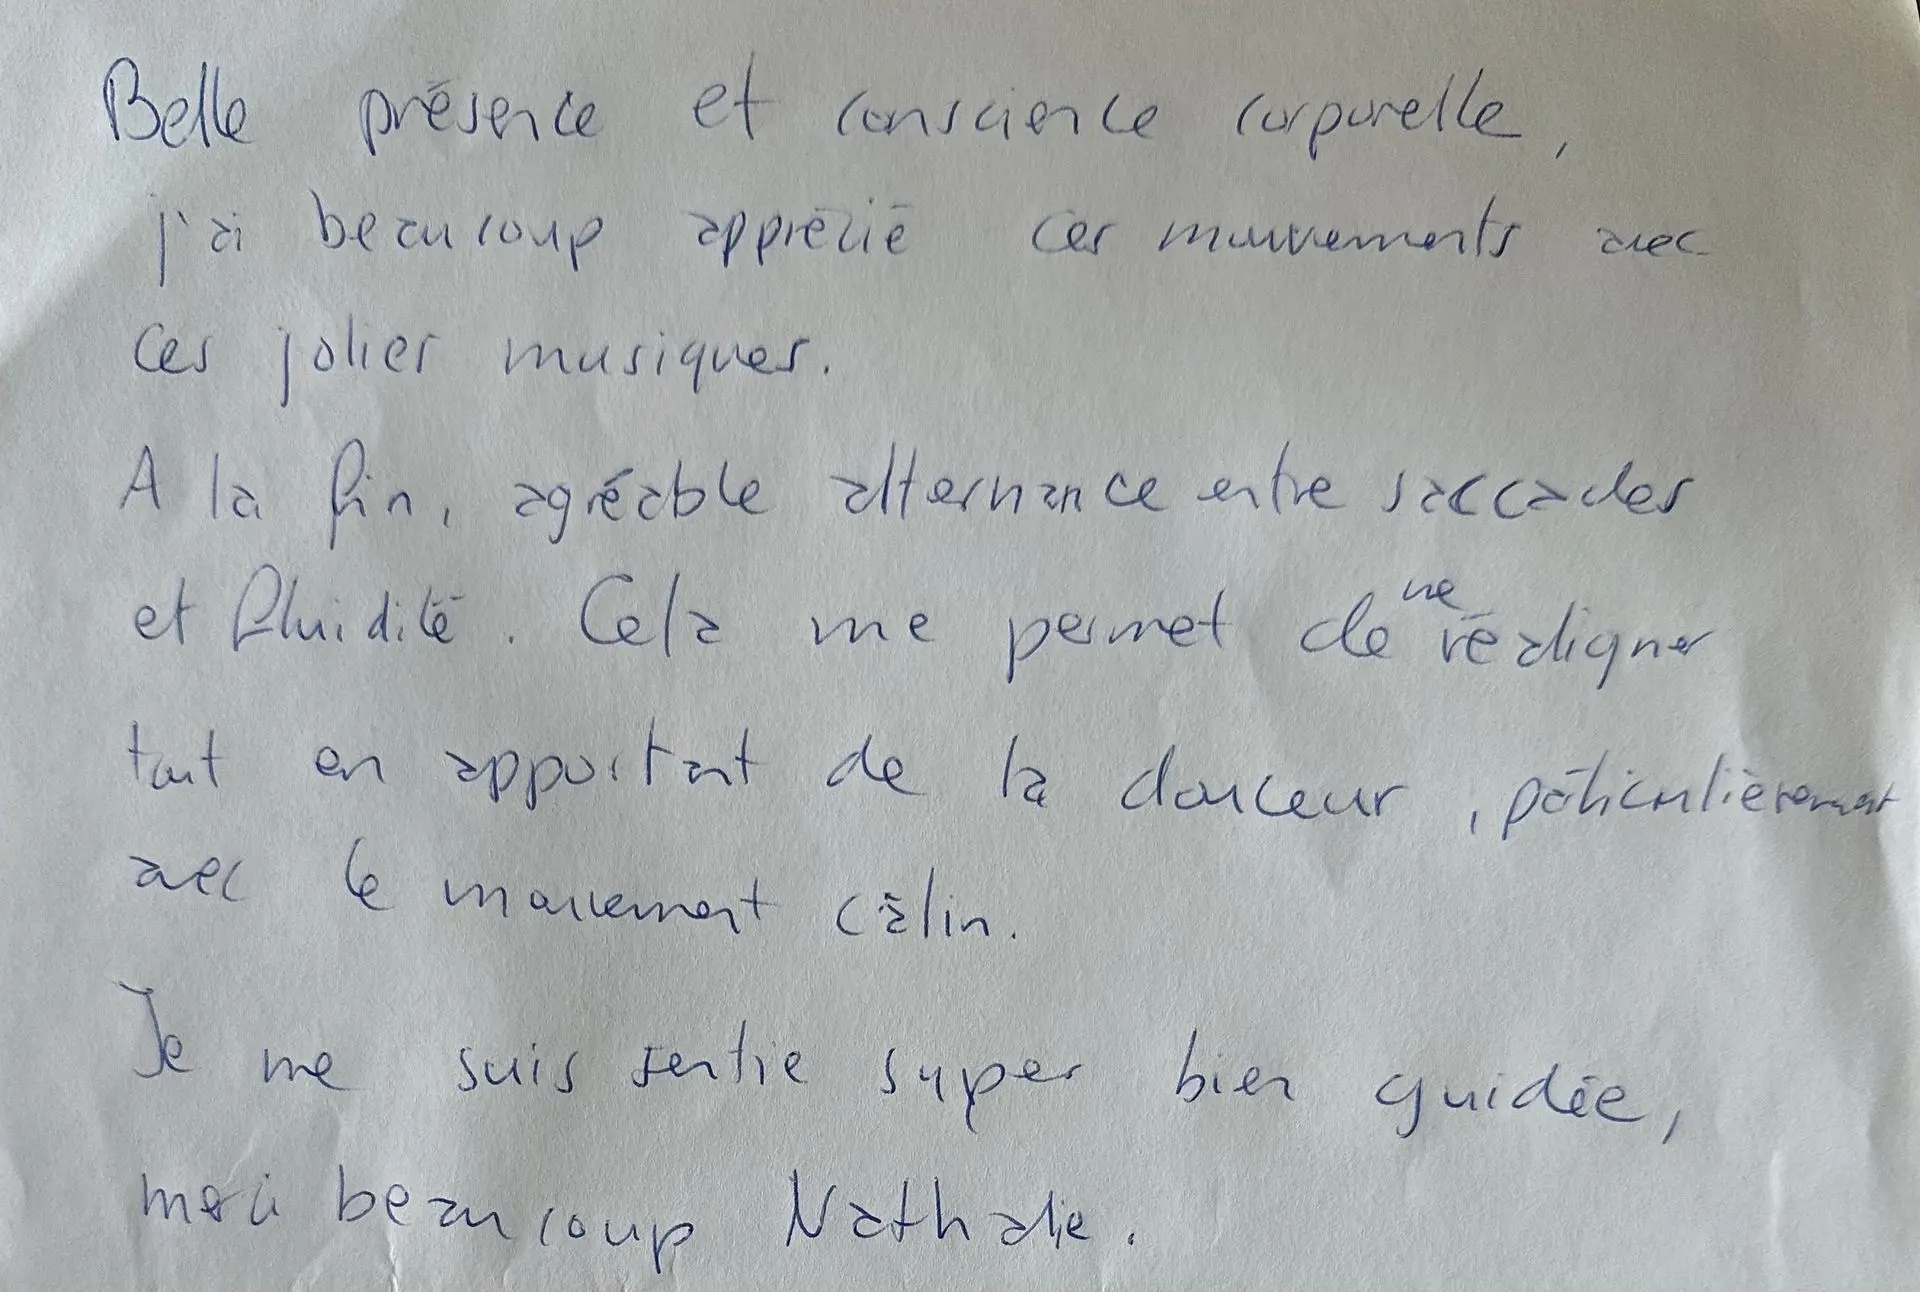 Belle présence et conscience corporelle,
j'ai beaucoup apprécié ces mouvements avec
ces jolies musiques.
A la fin, agréable alternance entre saccades
et fluidité. Cela me permet de me réaligner
tout en apportant de la douceur, particulièrement
avec le mouvement câlin.
Je me suis sentie super bien guidée,
merci beaucoup Nathalie.